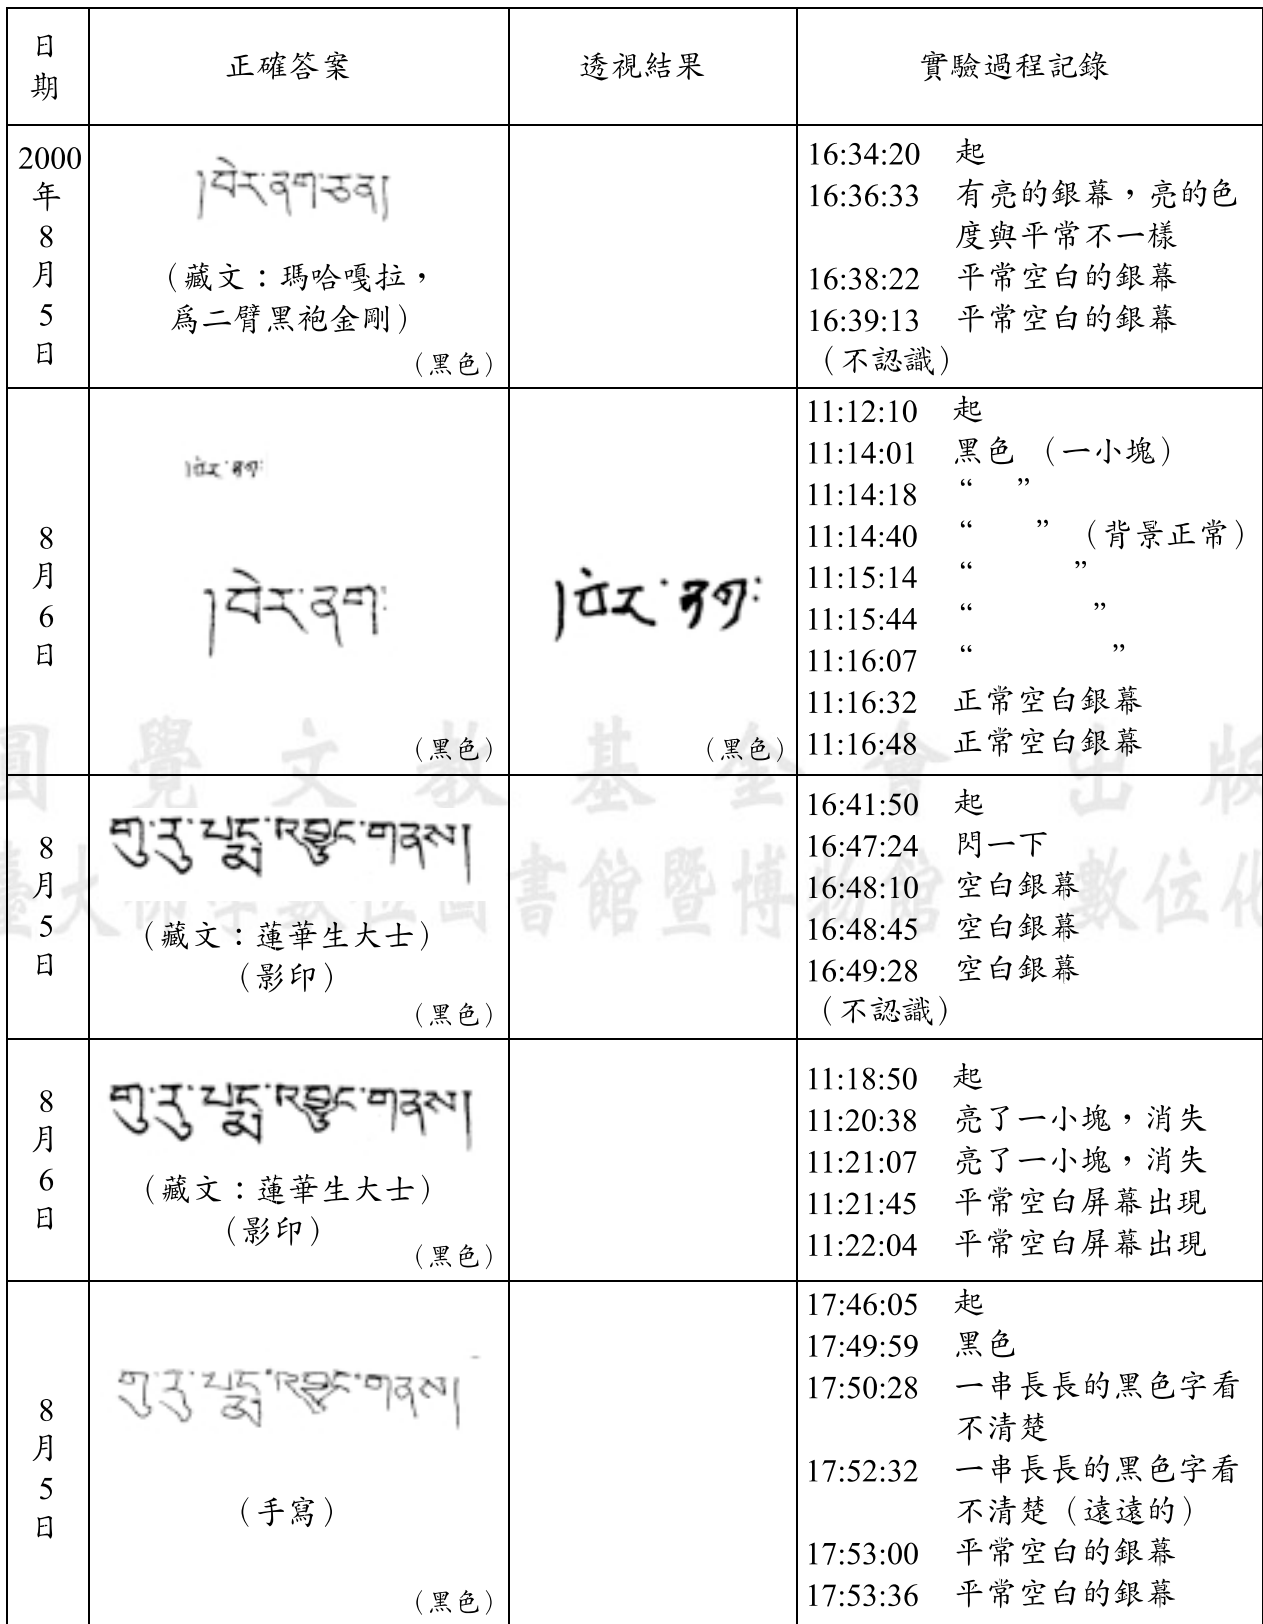 日期 正確答案 透視結果 實驗過程記錄
2000年8月5日
།བེར་ནག་ཅན།
（藏文：瑪哈嘎拉，
爲二臂黑袍金剛）
（黑色）
16:34:20 起
16:36:33 有亮的銀幕，亮的色
度與平常不一樣
16:38:22 平常空白的銀幕
16:39:13 平常空白的銀幕
（不認識）
8月6日
།བེར་ནག་
（黑色）
（黑色）
11:12:10 起
11:14:01 黑色（一小塊）
11:14:18 “ ”
11:14:40 “ ”（背景正常）
11:15:14 “ ”
11:15:44 “ ”
11:16:07 “ ”
11:16:32 正常空白銀幕
11:16:48 正常空白銀幕
8月5日
གུ་རུ་པདྨ་འབྱུང་གནས།
（藏文：蓮華生大士）
（影印）
（黑色）
16:41:50 起
16:47:24 閃一下
16:48:10 空白銀幕
16:48:45 空白銀幕
16:49:28 空白銀幕
（不認識）
8月6日
གུ་རུ་པདྨ་འབྱུང་གནས།
（藏文：蓮華生大士）
（影印）
（黑色）
11:18:50 起
11:20:38 亮了一小塊，消失
11:21:07 亮了一小塊，消失
11:21:45 平常空白屏幕出現
11:22:04 平常空白屏幕出現
8月5日
གུ་རུ་པདྨ་འབྱུང་གནས།
（手寫）
（黑色）
17:46:05 起
17:49:59 黑色
17:50:28 一串長長的黑色字看
不清楚
17:52:32 一串長長的黑色字看
不清楚（遠遠的）
17:53:00 平常空白的銀幕
17:53:36 平常空白的銀幕
圓覺文教基金會出版